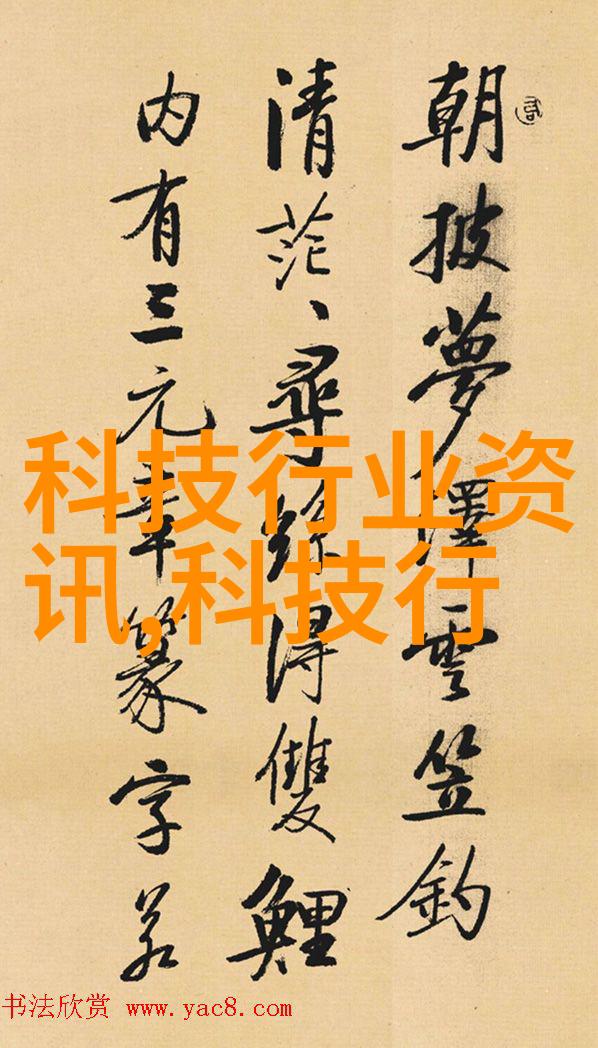 朝披夢澤雲笠釣
清茫〻尋絲得雙鯉
内有三元章篆字若
科技行业资
讯,科技行
书法欣赏 www.yac8.com